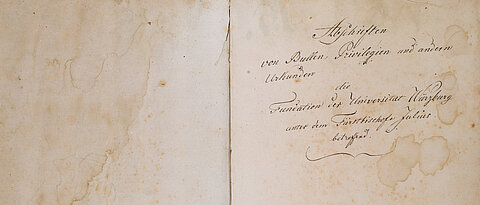 Abschriften
von Bullen, Privilegien und andern
Urkunden
die
Fundation der Universität Würzburg
unter dem Fürstbischofe Julius
betreffend.